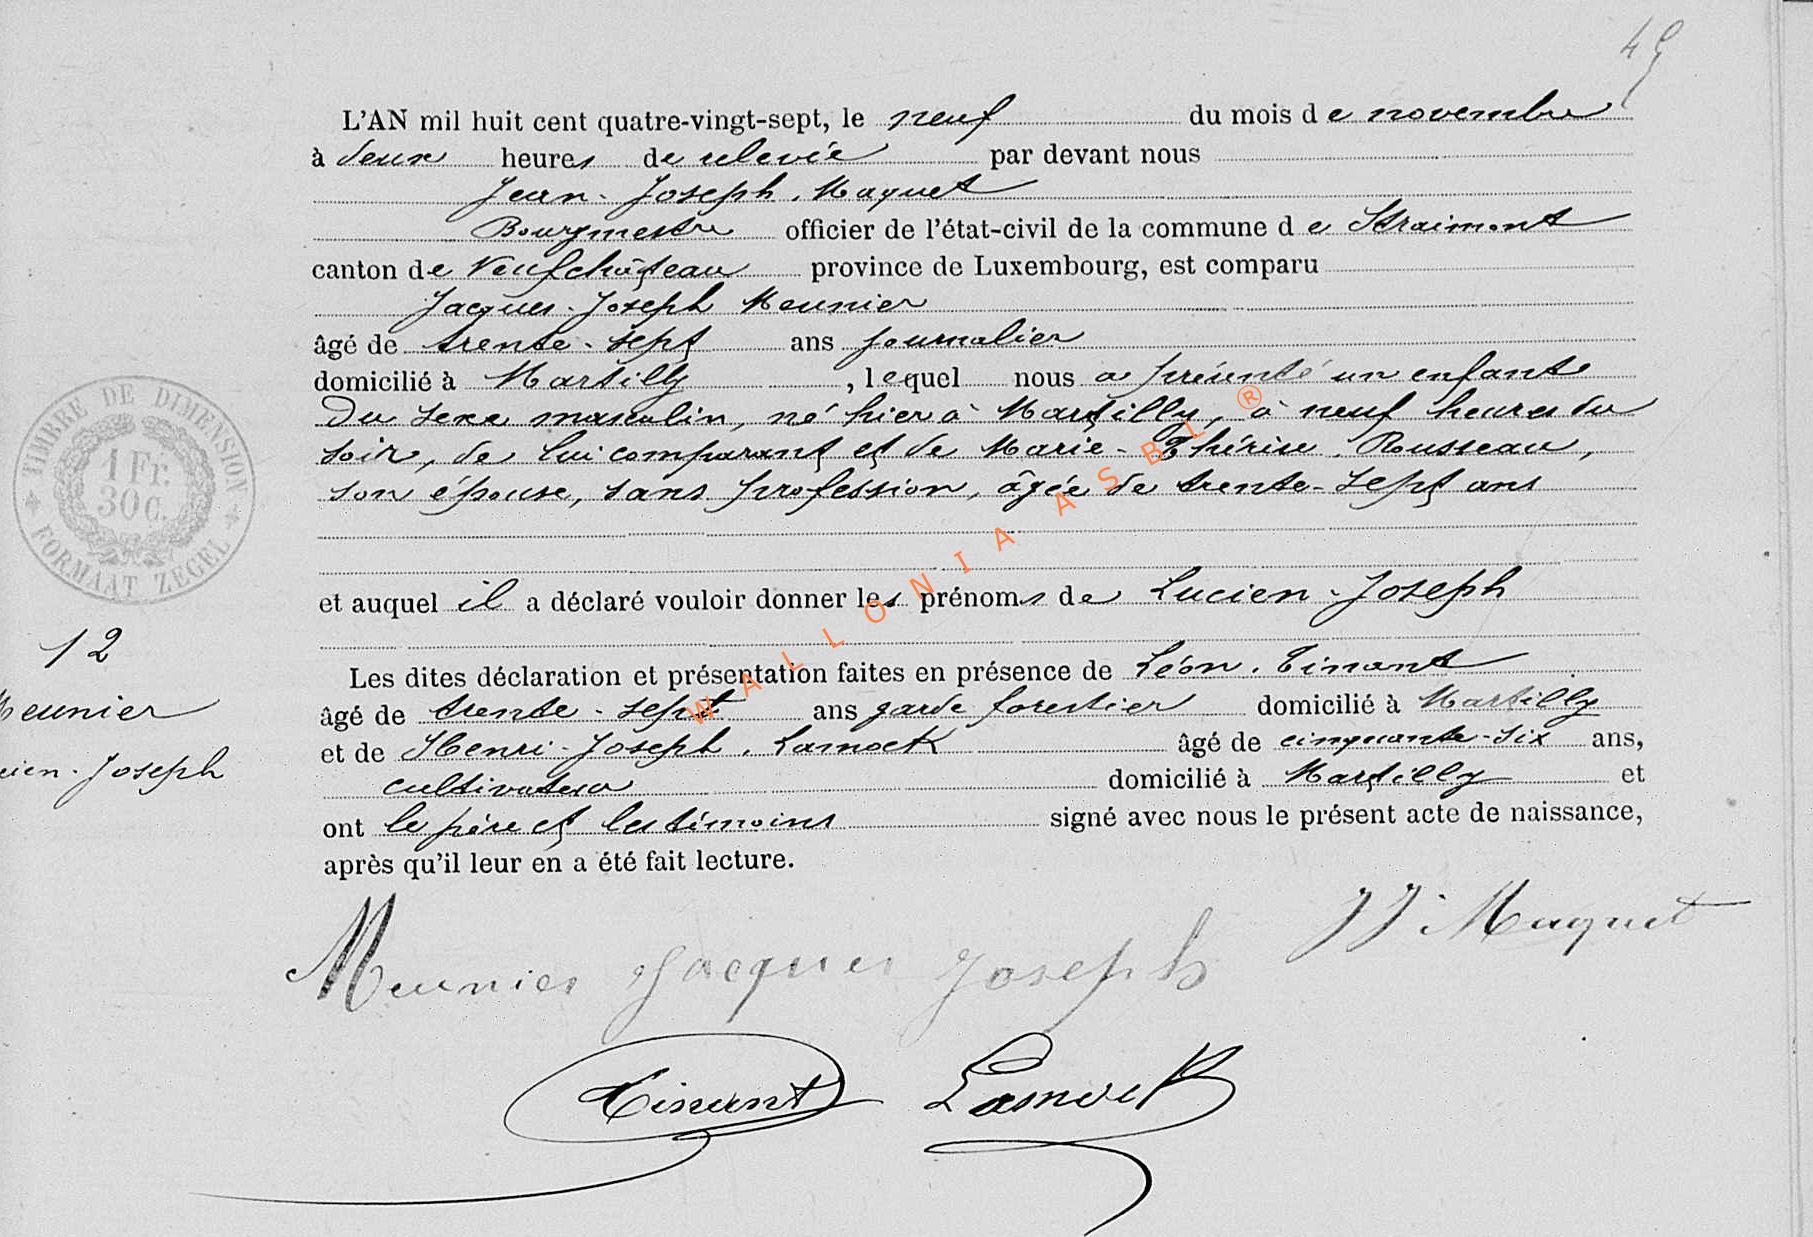 49
L'AN mil huit cent quatre-vingt-sept, le neuf du mois de novembre
à deux heures de relevée par devant nous
Jean-Joseph Maquet
Bourgmestre officier de l'état-civil de la commune de Straimont
canton de Neufchâteau province de Luxembourg, est comparu
Jacques-Joseph Meunier
âgé de trente-sept ans journalier
domicilié à Martilly, lequel nous a présenté un enfant
du sexe masculin, né hier à Martilly, à neuf heures du
soir, de lui comparant et de Marie-Thérèse Rousseau,
son épouse, sans profession, âgée de trente-sept ans
et auquel il a déclaré vouloir donner les prénoms de Lucien-Joseph
Les dites déclaration et présentation faites en présence de Léon Tinant
âgé de trente-sept ans garde forestier domicilié à Martilly
et de Henri-Joseph Lamock âgé de cinquante-six ans,
cultivateur domicilié à Martilly et
ont le père et les témoins signé avec nous le présent acte de naissance,
après qu'il leur en a été fait lecture.
TIMBRE DE DIMENSION
1 Fr.
30 C.
FORMAAT ZEGEL
12
Meunier
cien-Joseph
JJ Maquet
Meunier Jacques Joseph
Tinant Lamock
WALLONIA ASBL ®